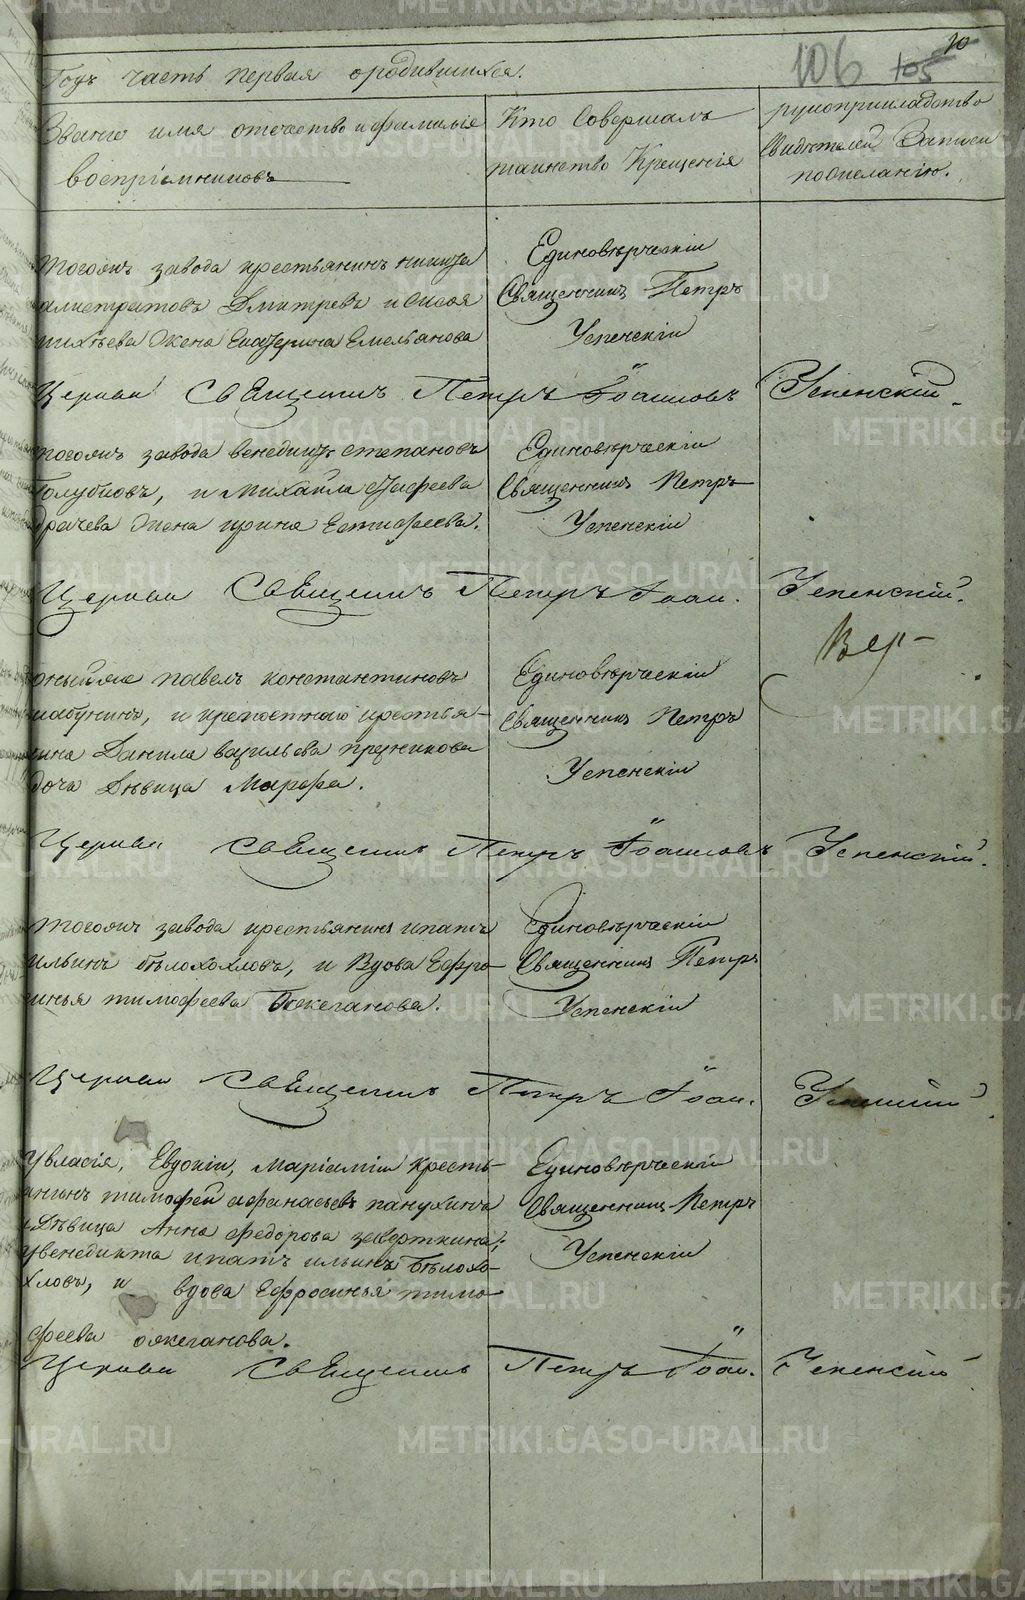 10
106 105
Годъ часть первая ородившихся.
Званіе имя отечество и фамилія
воспріемниковъ
Кто Совершалъ
таинство Крещенія
рукоприкладство
Свидѣтелей Записи
пожеланію.
тогожъ завода крестьянинъ никита
Дмитревъ и
жена Екатерина Емельянова
Единовѣрческій
Священникъ Петръ
Успенскій
Церкви Священникъ Петръ Іоанновъ Успенскій.
тогожъ завода венедиктъ степановъ
Голубковъ, и михайла
жена ирина Естифеева.
Единовѣрческій
Священникъ Петръ
Успенскій
Церкви Священникъ Петръ Іоан. Успенскій.
Вер-
онъйже павелъ константиновъ
и крепостнаго крестья-
нина Данила васильева
дочь Дѣвица Марфа.
Единовѣрческій
Священникъ Петръ
Успенскій
Церкви Священникъ Петръ Іоанновъ Успенскій.
тогожъ завода крестьянинъ ипатъ
ильинъ бѣлохохловъ, и Вдова Ефро-
синья тимофеева Ожеганова.
Единовѣрческій
Священникъ Петръ
Успенскій
Церкви Священникъ Петръ Іоан. Успенскій
Увласія, Евдокіи, Маріаміи Кресть-
янинъ тимофей афанасьевъ панухинъ
и Дѣвица Анна Федорова заверткина;
Увенедикта ипатъ ильинъ Бѣлохо-
хловъ, и вдова Ефросинья тимо-
феева ожеганова.
Единовѣрческій
Священникъ Петръ
Успенскій
Церкви Священникъ Петръ Іоан. Успенскій
METRIKI.GASO-URAL.RU